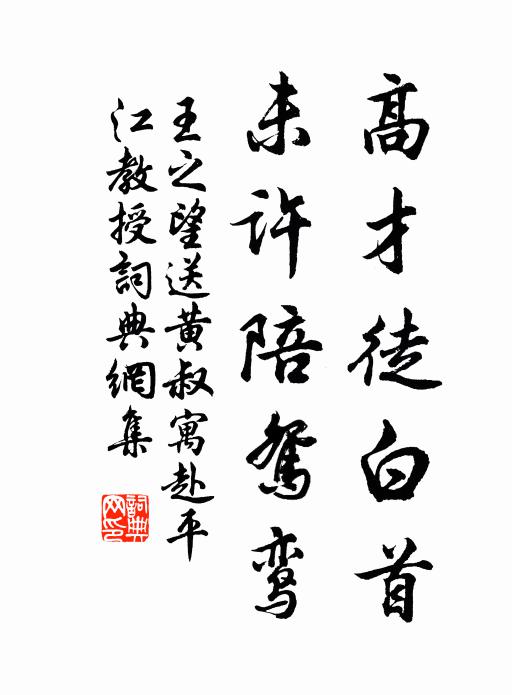 高才徒白首
未許陪鴛鸾
王之望送黄叔寓赴平
江教授詞典網集
詞典
网印